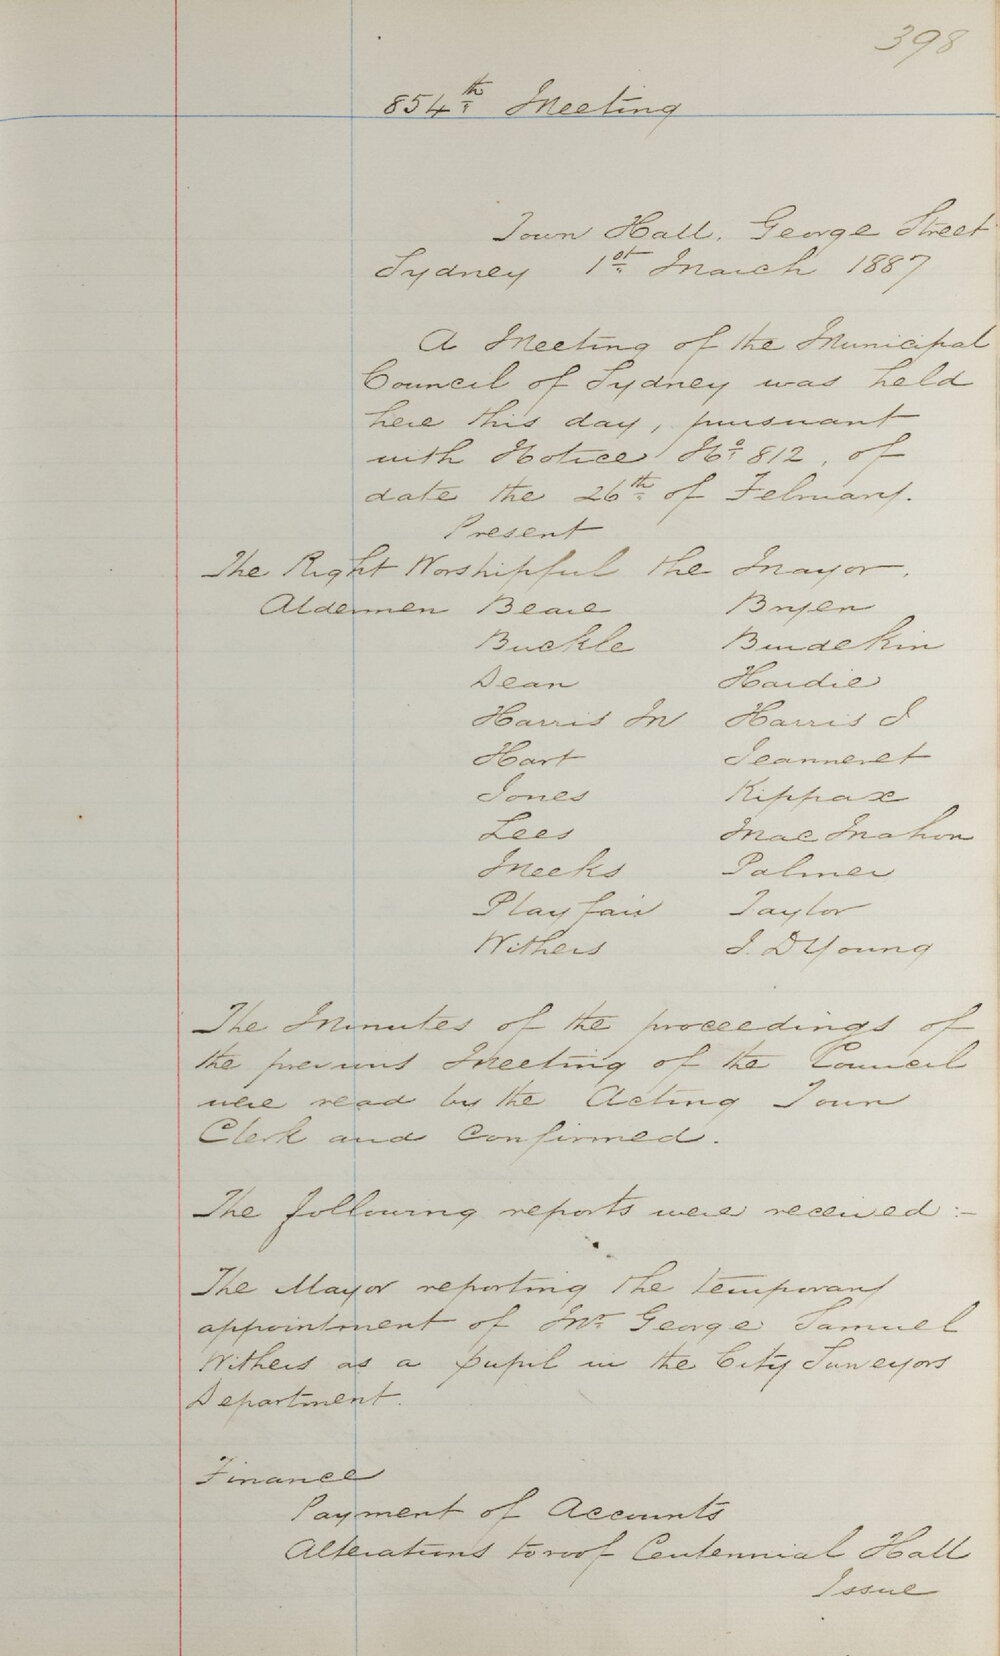 398
854th Meeting
Town Hall, George Street
Sydney 1st March 1887
A Meeting of the Municipal
Council of Sydney was held
here this day, pursuant
with Notice No 812, of
date the 26th of February.
Present
The Right Worshipful the Mayor.
Aldermen Beare Bryen
Buckle Burdekin
Dean Hardie
Harris M Harris J
Hart Jeanneret
Jones Kippax
Lees MacMahon
Meeks Palmer
Playfair Taylor
Withers J. D Young
The Minutes of the proceedings of
the previous Meeting of the Council
were read by the Acting Town
Clerk and Confirmed.
The following reports were received:-
The Mayor reporting the temporary
appointment of Mr George Samuel
Withers as a pupil in the City Surveyors
Department.
Finance
Payment of Accounts
Alterations to roof Centennial Hall
Issue